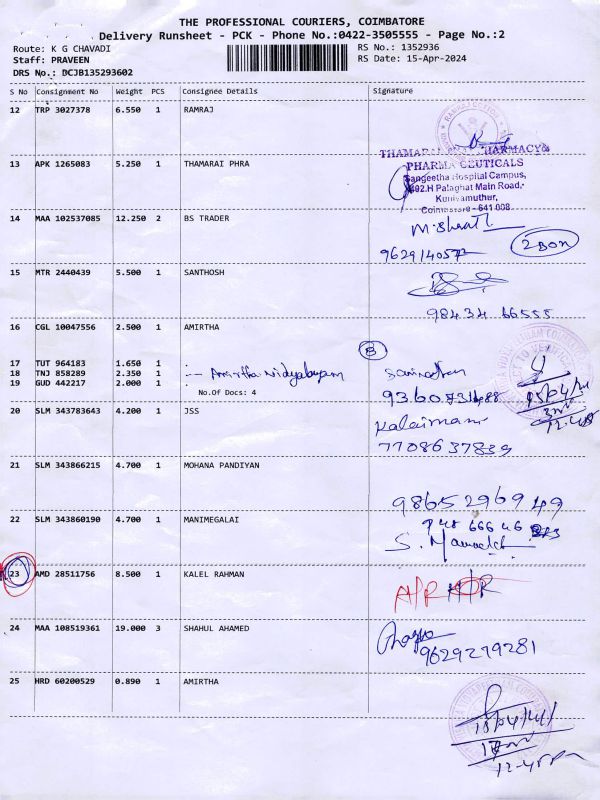 THE PROFESSIONAL COURIERS, COIMBATORE
Delivery Runsheet - PCK - Phone No.:0422-3505555 - Page No.:2
Route: K G CHAVADI
RS No.: 1352936
Staff: PRAVEEN
RS Date: 15-Apr-2024
DRS No.: DCJB135293602
S No Consignment No Weight PCS Consignee Details Signature
12 TRP 3027378 6.550 1 RAMRAJ
13 APK 1265083 5.250 1 THAMARAI PHRA
PHARMACY&
PHARMA CEUTICALS
Sangeetha Hospital Campus,
Palaghat Main Road,
Kuniyamuthur,
Coimbatore - 641 008
14 MAA 102537085 12.250 2 BS TRADER
M. Bharath
2 BOX
15 MTR 2440439 5.500 1 SANTHOSH
98434 66555
16 CGL 10047556 2.500 1 AMIRTHA
17 TUT 964183 1.650 1 .
18 TNJ 858289 2.350 1 . Amirtha Vidyalayam
19 GUD 442217 2.000 1 .
No.Of Docs: 4
20 SLM 343783643 4.200 1 JSS
Kalaimani
7708637839
21 SLM 343866215 4.700 1 MOHANA PANDIYAN
9865296949
22 SLM 343860190 4.700 1 MANIMEGALAI
23 AMD 28511756 8.500 1 KALEL RAHMAN
A/R
24 MAA 108519361 19.000 3 SHAHUL AHAMED
9629279281
25 HRD 60200529 0.890 1 AMIRTHA
12-45 Pm